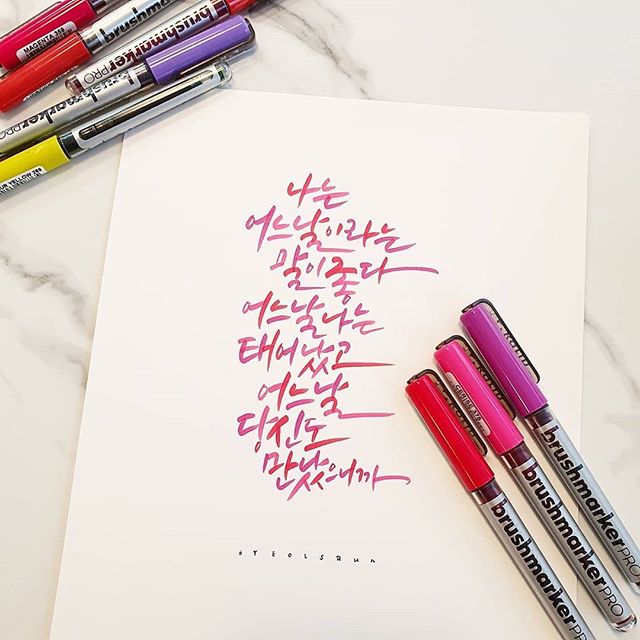 MAGENTA 385
brushmarkerPRO
brushmarkerPRO
brushmarkerPRO
나는
어느날이라는
말이좋다
어느날나는
태어났고
어느날
당신도
만났으니까
brushmarkerPRO
brushmarkerPRO
brushmarkerPRO